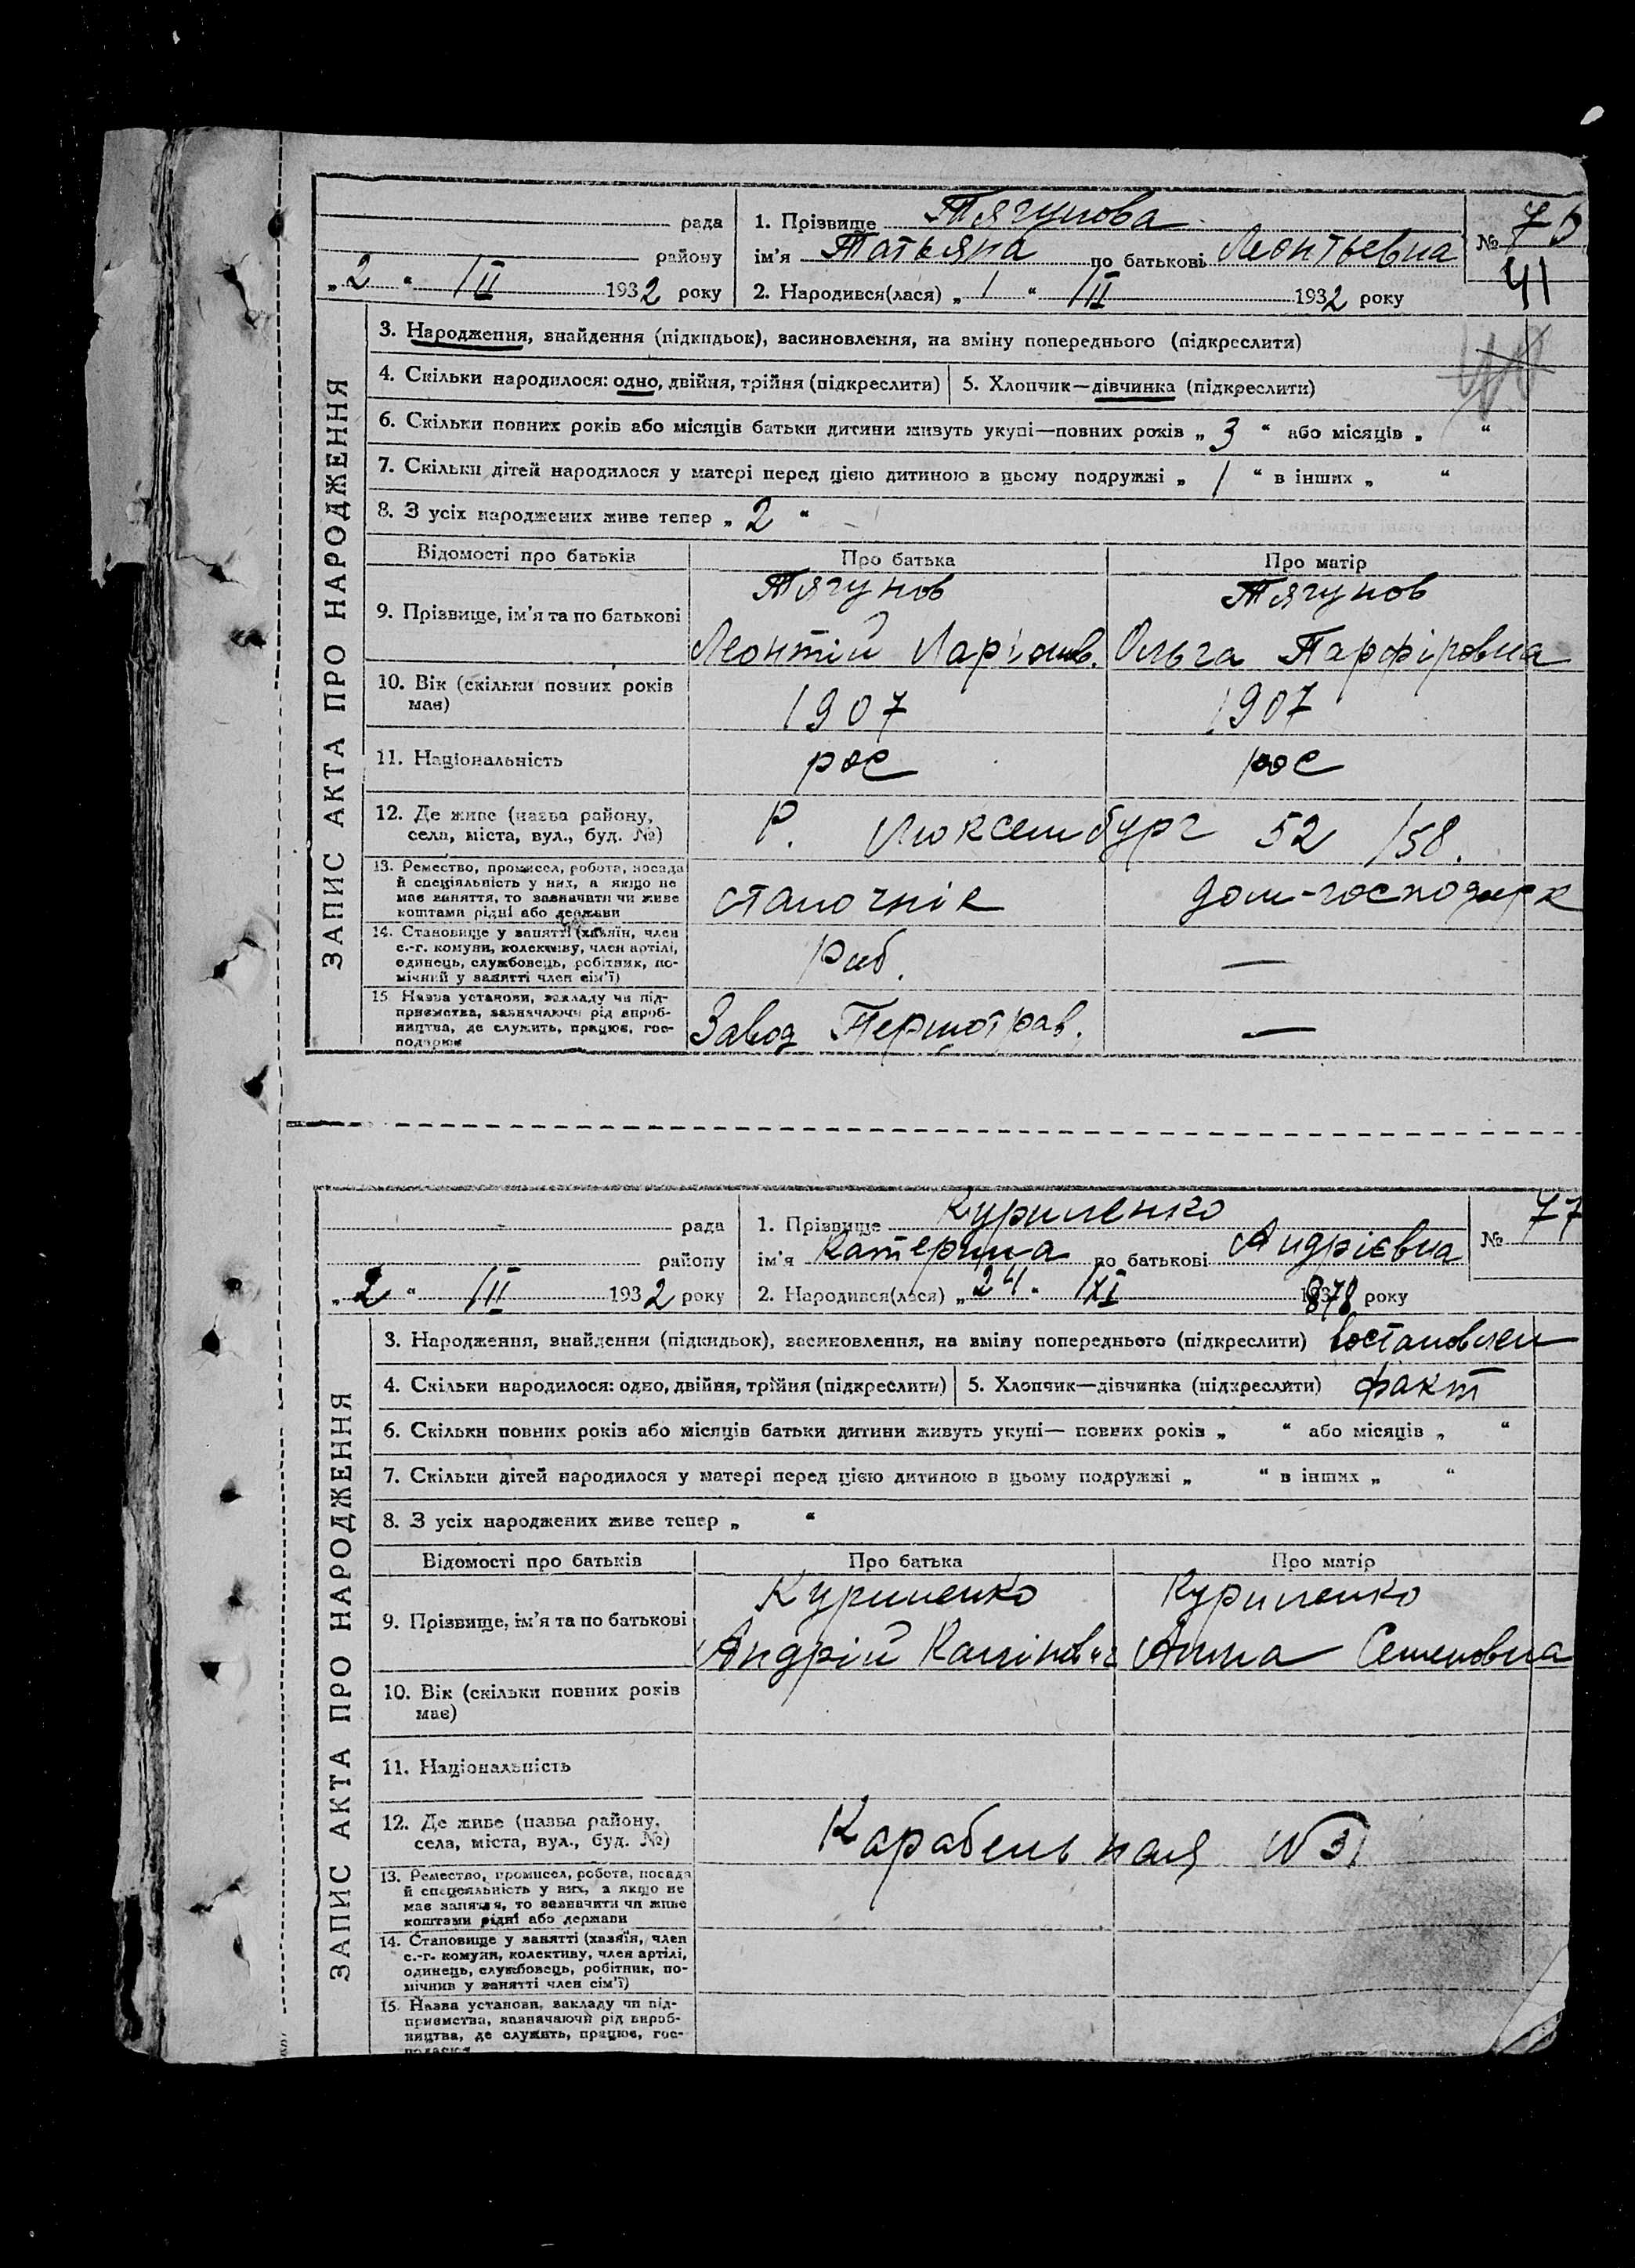 рада
району
„2“ /III 1932 року
1. Прізвище Тягунова
ім'я Татьяна по батькові Леонтьевна
2. Народився(лася) „1“ /III 1932 року
№ 76
41
ЗАПИС АКТА ПРО НАРОДЖЕННЯ
3. Народження, знайдення (підкидьок), засиновлення, на зміну попереднього (підкреслити)
4. Скільки народилося: одно, двійня, трійня (підкреслити) 5. Хлопчик—дівчинка (підкреслити)
6. Скільки повних років або місяців батьки дитини живуть укупі—повних років „3“ або місяців „ “
7. Скільки дітей народилося у матері перед цією дитиною в цьому подружжі „1“ в інших „ “
8. З усіх народжених живе тепер „2“
Відомості про батьків Про батька Про матір
9. Прізвище, ім'я та по батькові
Тягунов Тягунов
Леонтій Ларіонв. Ольга Парфіровна
10. Вік (скільки повних років
має)
1907 1907
11. Національність рос рос
12. Де живе (назва району,
села, міста, вул., буд. №)
Р. Люксембург 52 /58.
13. Ремество, промисел, робота, посада
й спеціяльність у них, а якщо не
має заняття, то зазначати чи живе
коштами рідні або держави
станочнік дом-господарк
14. Становище у занятті (хазяїн, член
с.-г. комуни, колективу, член артілі,
одинець, службовець, робітник, по-
мічний у занятті член сім'ї)
Раб. —
15. Назва установи, закладу чи під-
приємства, зазначаючи рід вироб-
ництва, де служить, працює, гос-
подарює
Завод —
рада
району
„2“ /III 1932 року
1. Прізвище Куриленко
ім'я Катерина по батькові Андрієвна
2. Народився(лася) „24“ /XI 1878 року
№ 77
ЗАПИС АКТА ПРО НАРОДЖЕННЯ
3. Народження, знайдення (підкидьок), засиновлення, на зміну попереднього (підкреслити) востановлен
4. Скільки народилося: одно, двійня, трійня (підкреслити) 5. Хлопчик—дівчинка (підкреслити) факт
6. Скільки повних років або місяців батьки дитини живуть укупі— повних років „ “ або місяців „ “
7. Скільки дітей народилося у матері перед цією дитиною в цьому подружжі „ “ в інших „ “
8. З усіх народжених живе тепер „ “
Відомості про батьків Про батька Про матір
9. Прізвище, ім'я та по батькові
Куриленко Куриленко
Андрій Анна Семеновна
10. Вік (скільки повних років
має)
11. Національність
12. Де живе (назва району,
села, міста, вул., буд. №)
Карабельная N 31
13. Ремество, промисел, робота, посада
й спецеяльність у них, а якщо не
має заняття, то зазначити чи живе
коштами рідні або держави
14. Становище у занятті (хазяїн, член
с.-г. комуни, колективу, член артілі,
одинець, службовець, робітник, по-
мічний у занятті член сім'ї)
15. Назва установи, закладу чи під-
приємства, зазначаючи рід вироб-
ництва, де служить, працює, гос-
подарює